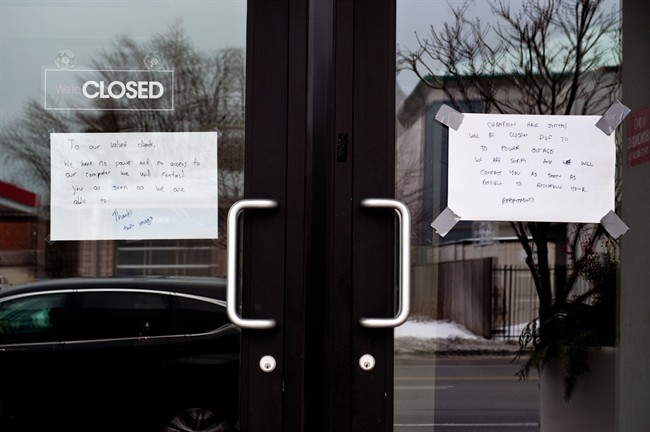 We're CLOSED
To our valued clients,
We have no power and no access to
our computer we will contact
you as soon as we are
able to.
Thanks
CHAMPION HAIR
WILL BE CLOSED DUE TO
TO POWER OUTAGE
WE ARE SORRY AND WE WILL
CONTACT YOU AS SOON AS
POSSIBLE TO RESCHEDULE YOUR
APPOINTMENTS